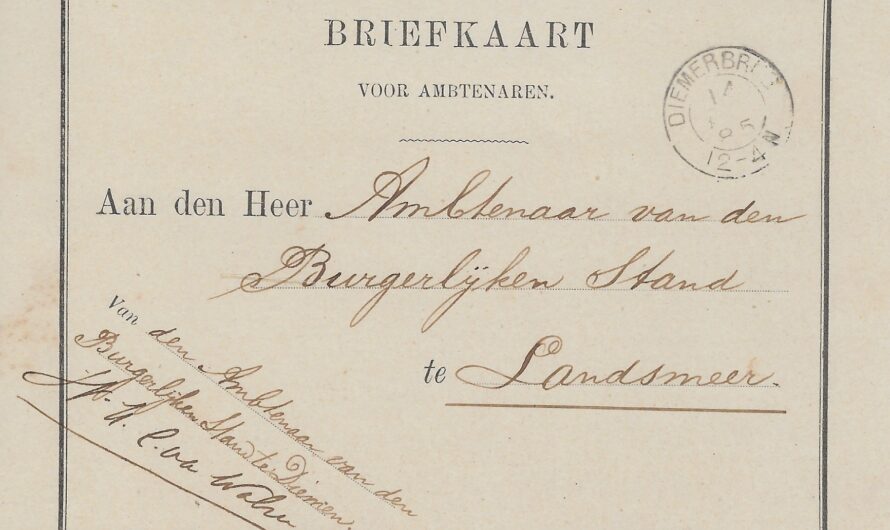 BRIEFKAART
VOOR AMBTENAREN.
DIEMERBRUG
12-4N
Aan den Heer Ambtenaar van den
Burgerlijken Stand
te Landsmeer.
Van den Ambtenaar van den
Burgerlijken Stand te Diemen.